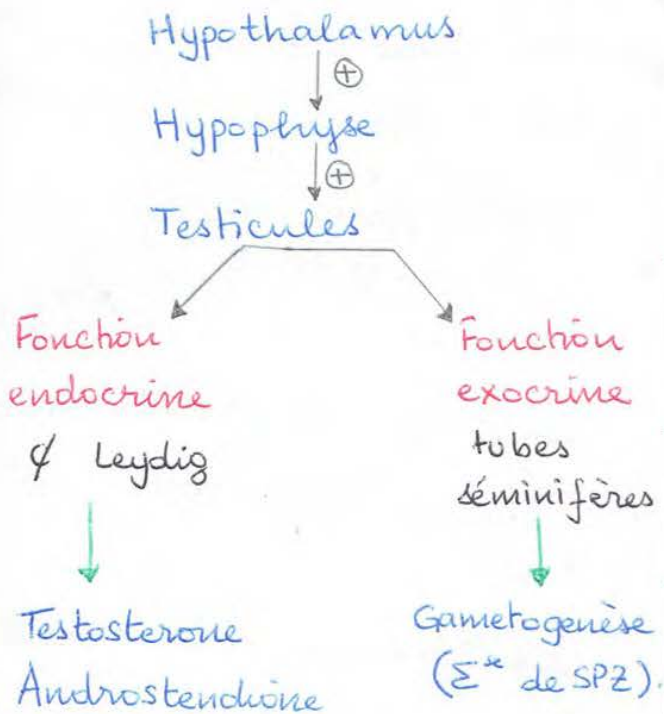 Hypothalamus
⊕
Hypophyse
⊕
Testicules
Fonction
endocrine
¢ Leydig
Testosterone
Androstendione
Fonction
exocrine
tubes
séminifères
Gametogenèse
(Σse de SPZ).